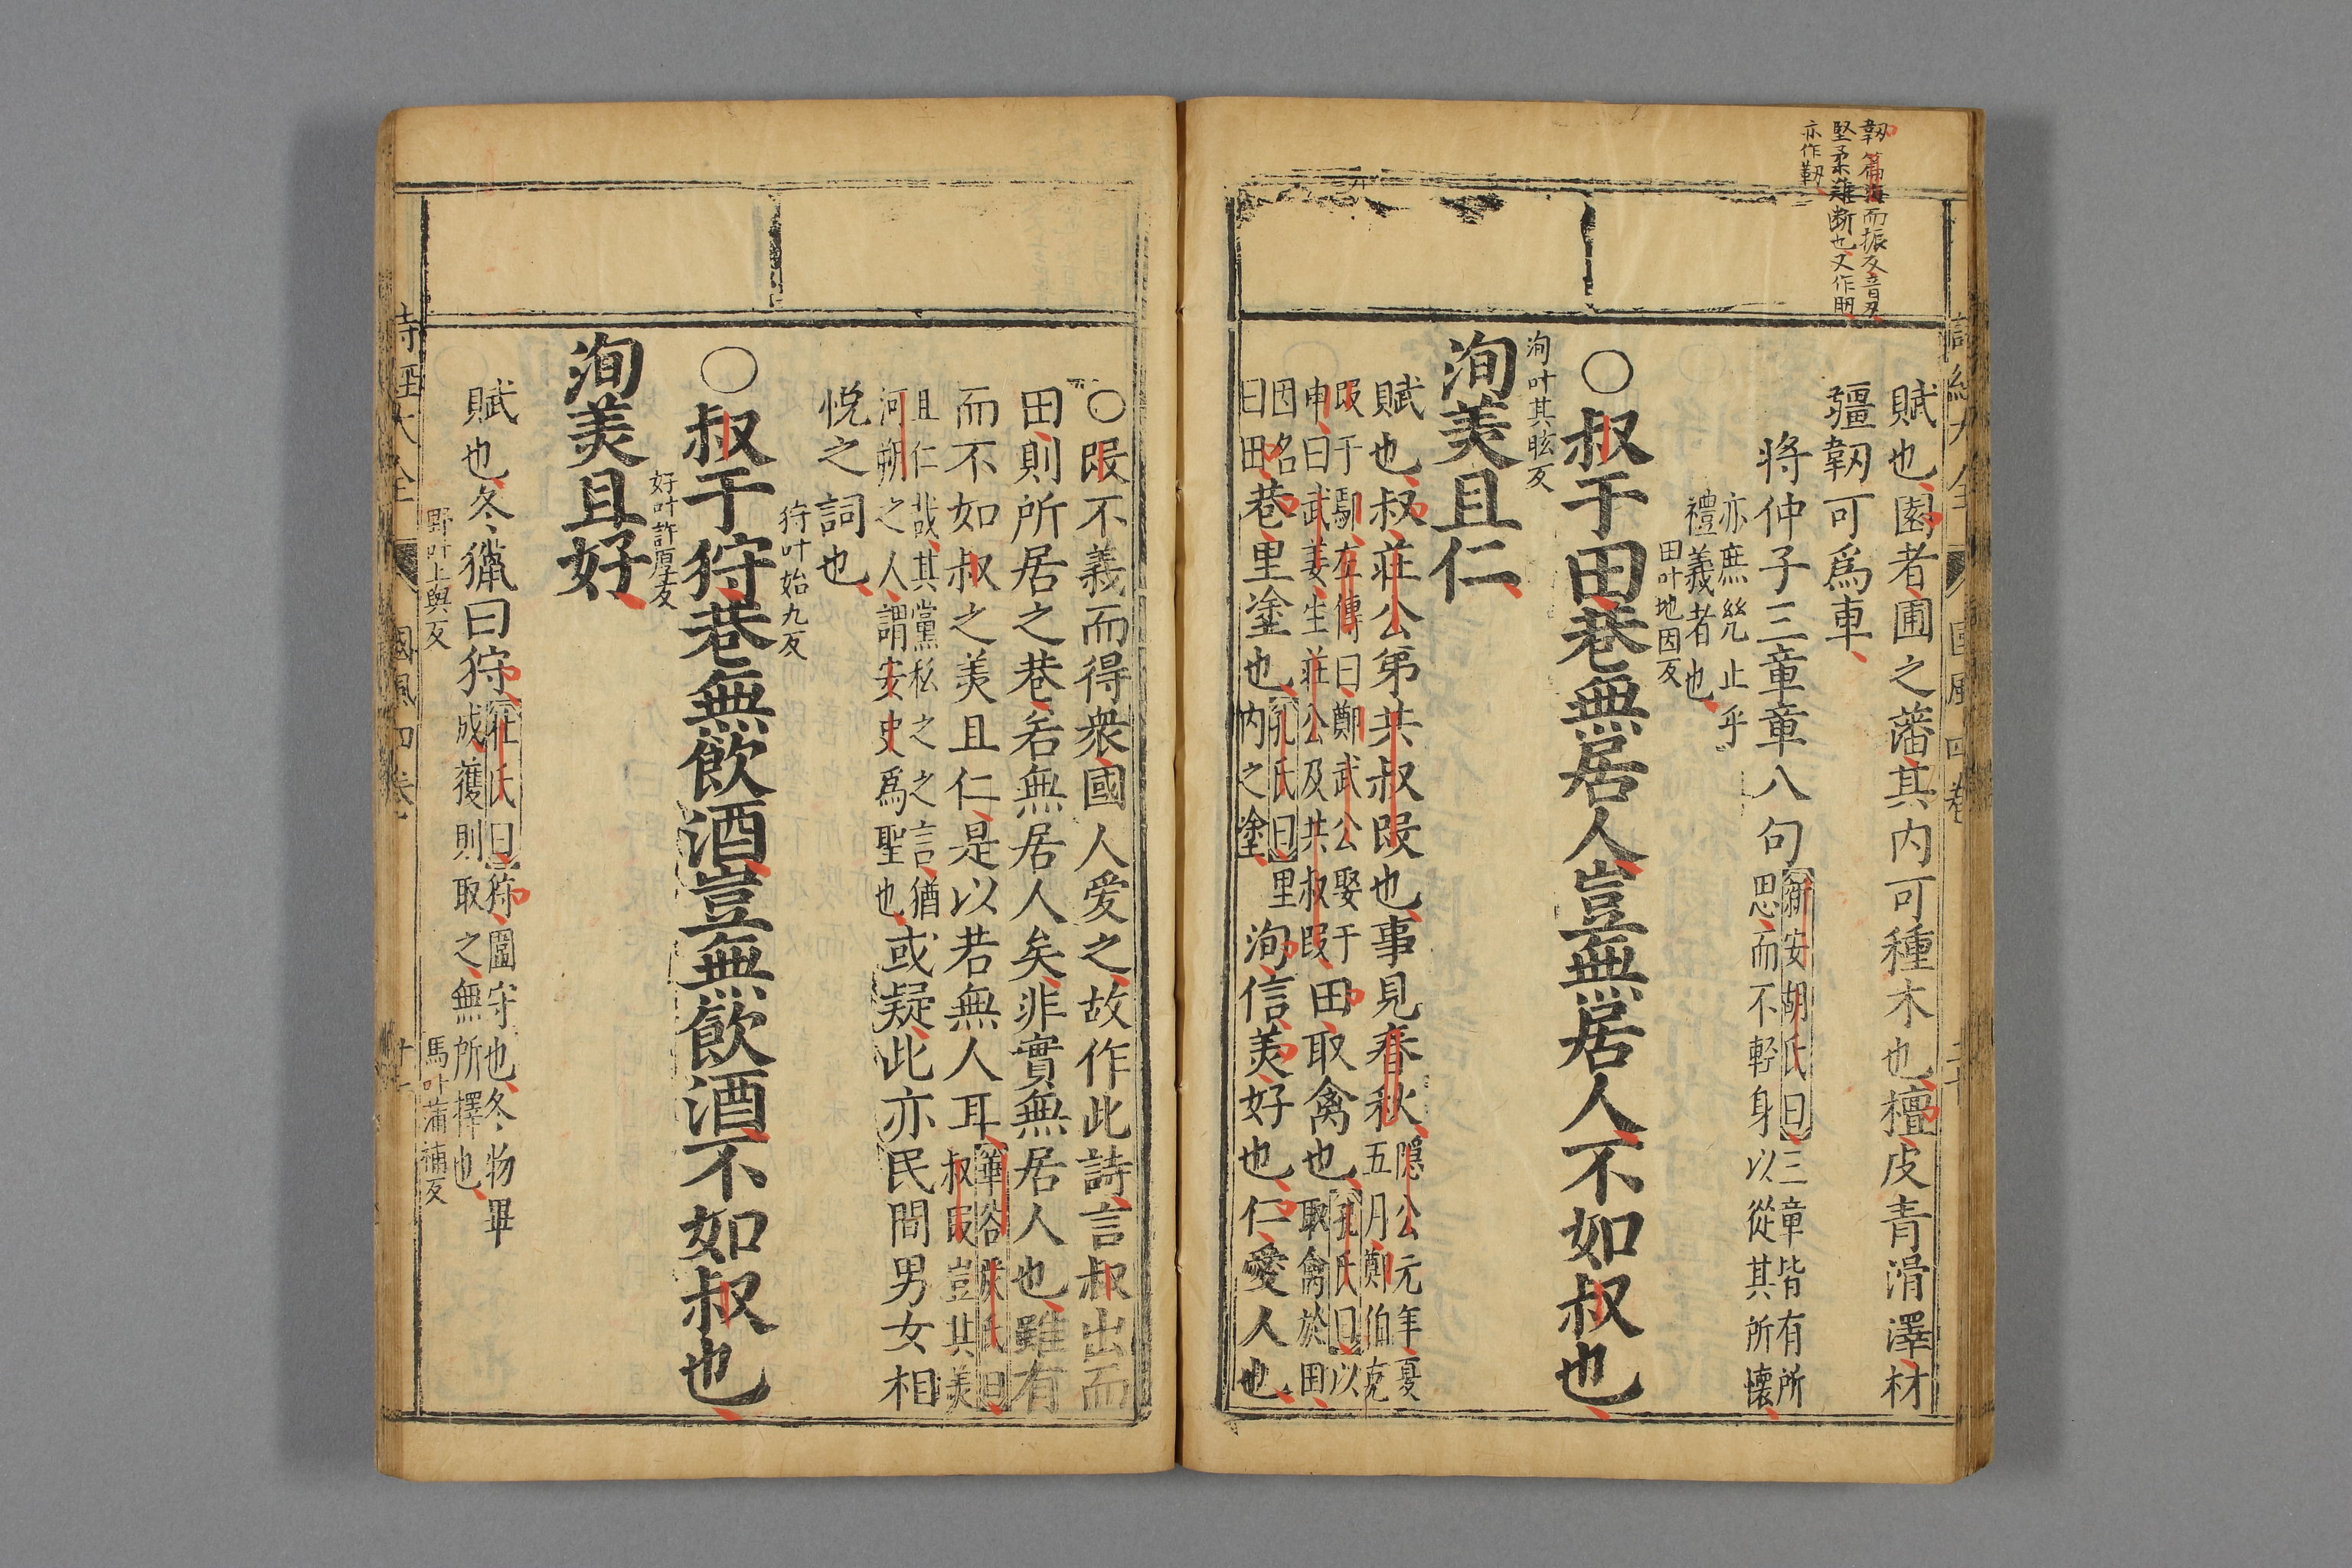 韌篇海而振反音刃
堅柔難斷也又作肕
亦作靭
賦也園者圃之藩其内可種木也檀皮青滑澤材
彊韌可爲車
將仲子三章章八句
新安胡氏曰三章皆有所
思而不輕身以從其所懷
亦庶㡬止乎
禮義者也
田叶地因反
○叔于田巷無居人豈無居人不如叔也
洵叶其眩反
洵美且仁
賦也叔莊公第共叔段也事見春秋
隱公元年夏
五月鄭伯克
段于鄢左傳曰鄭武公娶于
申曰武姜生莊公及共叔段
田取禽也
孔氏曰以
取禽於田
因名
曰田
巷里塗也
孔氏曰里
内之塗
洵信美好也仁愛人也
○段不義而得衆國人爱之故作此詩言叔出而
田則所居之巷若無居人矣非實無居人也雖有
而不如叔之美且仁是以若無人耳
華谷嚴氏曰
叔段豈其美
且仁哉其黨私之之言猶
河朔之人謂安史爲聖也
或疑此亦民間男女相
悅之詞也
狩叶始九反
○叔于狩巷無飲酒豈無飲酒不如叔也
好叶許厚反
洵美且好
賦也冬獵曰狩
杜氏曰狩圍守也冬物畢
成獲則取之無所擇也
野叶上與反
馬叶蒲補反
詩經大全
國風四卷